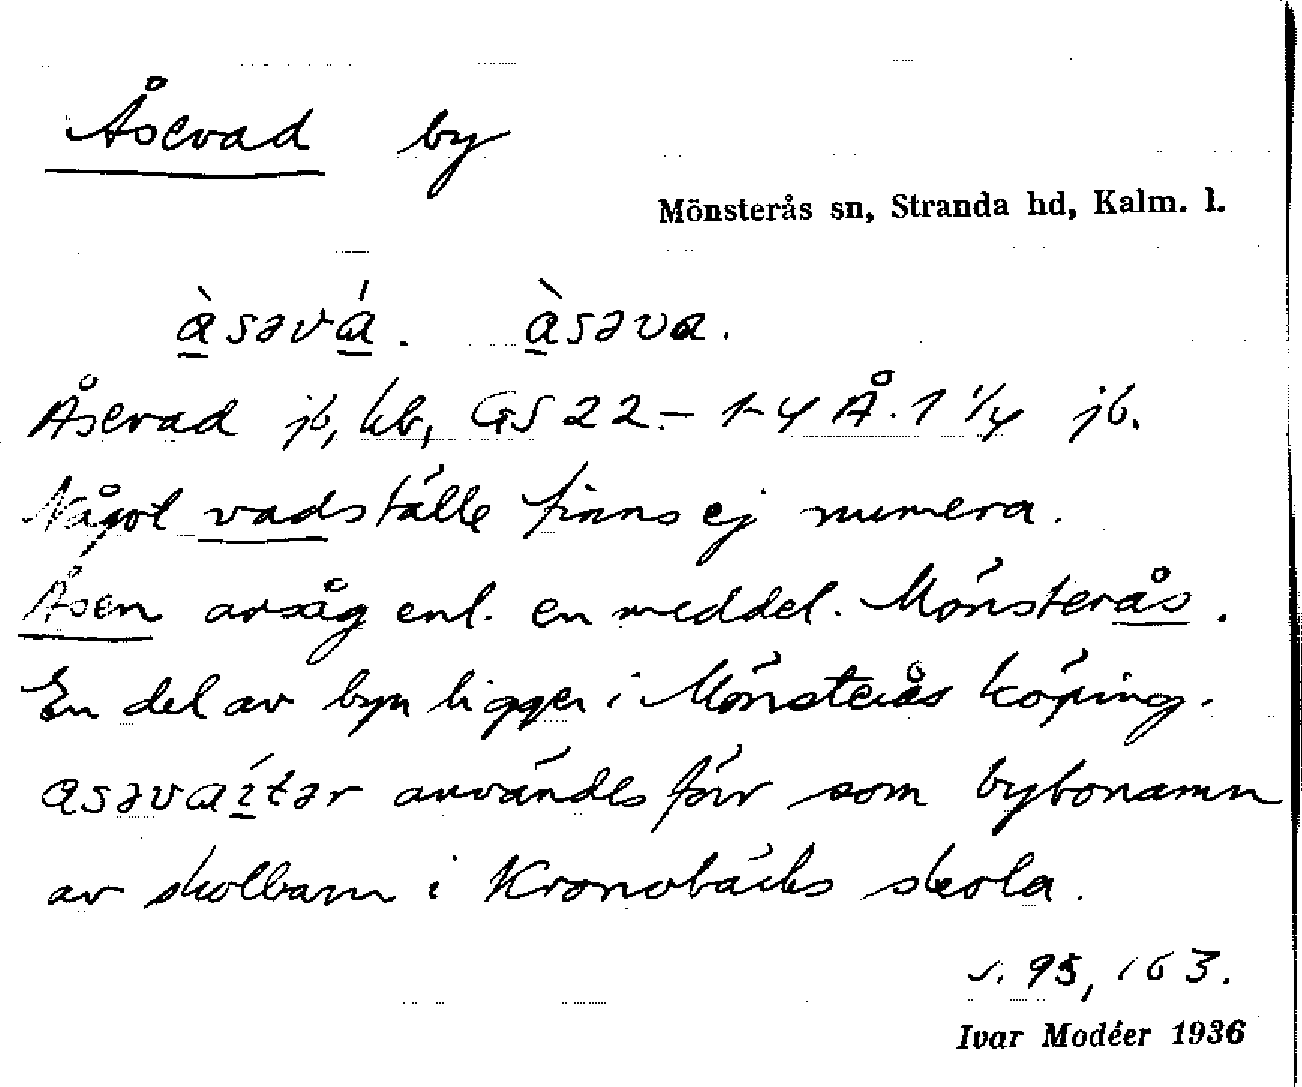 Åsevad by
Mönsterås sn, Stranda hd, Kalm. l.
àsəvá. àsəva.
Åsevad jb, kb, GS 22 – 1-4 Å. 1 1/4 jb.
Något vadställe finns ej numera.
Åsen avsåg enl. en meddel. Mönsterås.
En del av byn ligger i Mönsterås köping.
asəvaítər användes förr som bybonamn
av skolbarn i Kronobäcks skola.
s. 95, 163.
Ivar Modéer 1936